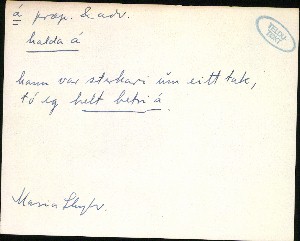 á præp. & adv.
halda á
hann var sterkari úm eitt tak,
tó eg helt betri á.
Maria